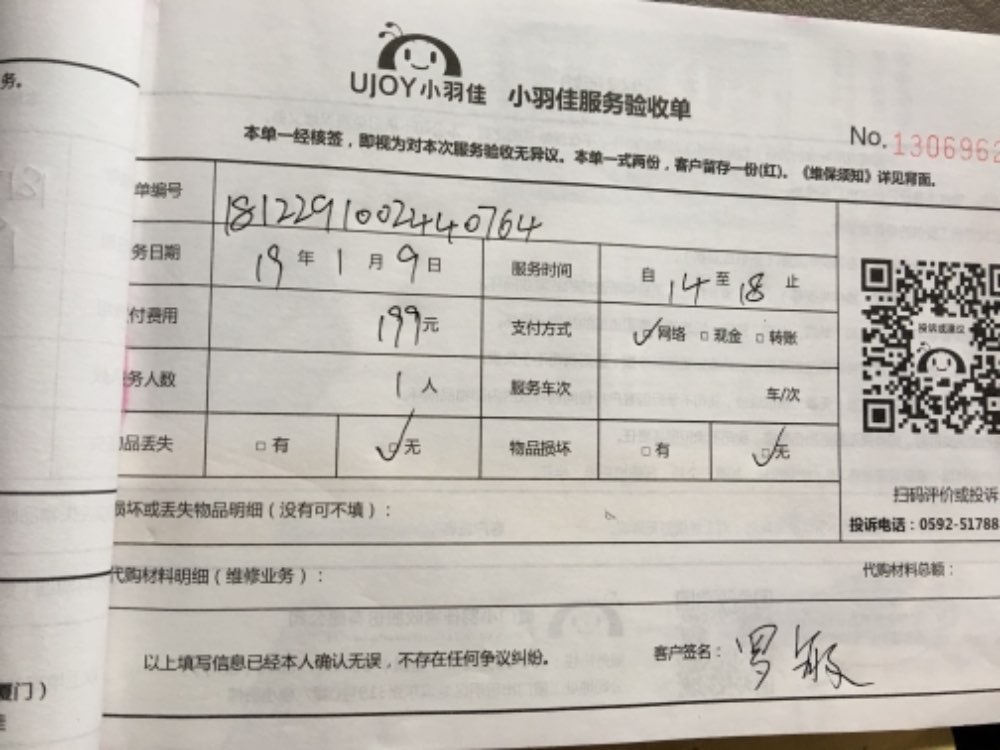 务。
UJOY小羽佳 小羽佳服务验收单
No. 1306962
本单一经核签，即视为对本次服务验收无异议。本单一式两份，客户留存一份(红)。《维保须知》详见背面。
单编号 181229100244 0764
务日期 19年1月9日 服务时间 自14至18止
付费用 199元 支付方式 网络 现金 转账
务人数 1人 服务车次 车/次
品丢失 有 无 物品损坏 有 无
投诉或建议
扫码评价或投诉
投诉电话：0592-51788
损坏或丢失物品明细（没有可不填）：
代购材料明细（维修业务）： 代购材料总额：
以上填写信息已经本人确认无误，不存在任何争议纠纷。 客户签名：罗敏
厦门）
佳